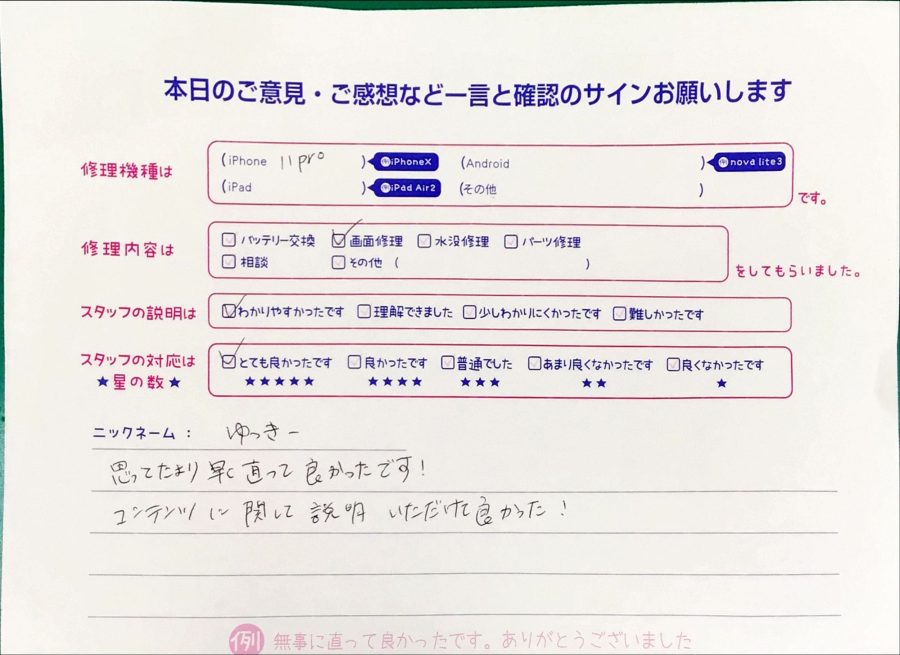 本日のご意見・ご感想など一言と確認のサインお願いします
修理機種は
(iPhone 11pro ) 例iPhoneX (Android ) 例nova lite3
(iPad ) 例iPad Air2 (その他 ) です。
修理内容は
バッテリー交換 画面修理 水没修理 パーツ修理
相談 その他 ( ) をしてもらいました。
スタッフの説明は わかりやすかったです 理解できました 少しわかりにくかったです 難しかったです
スタッフの対応は とても良かったです 良かったです 普通でした あまり良くなかったです 良くなかったです
★星の数★ ★★★★★ ★★★★ ★★★ ★★ ★
ニックネーム： ゆっきー
思ってたより早く直って良かったです!
コンテンツに関して説明いただけて良かった!
例 無事に直って良かったです。ありがとうございました